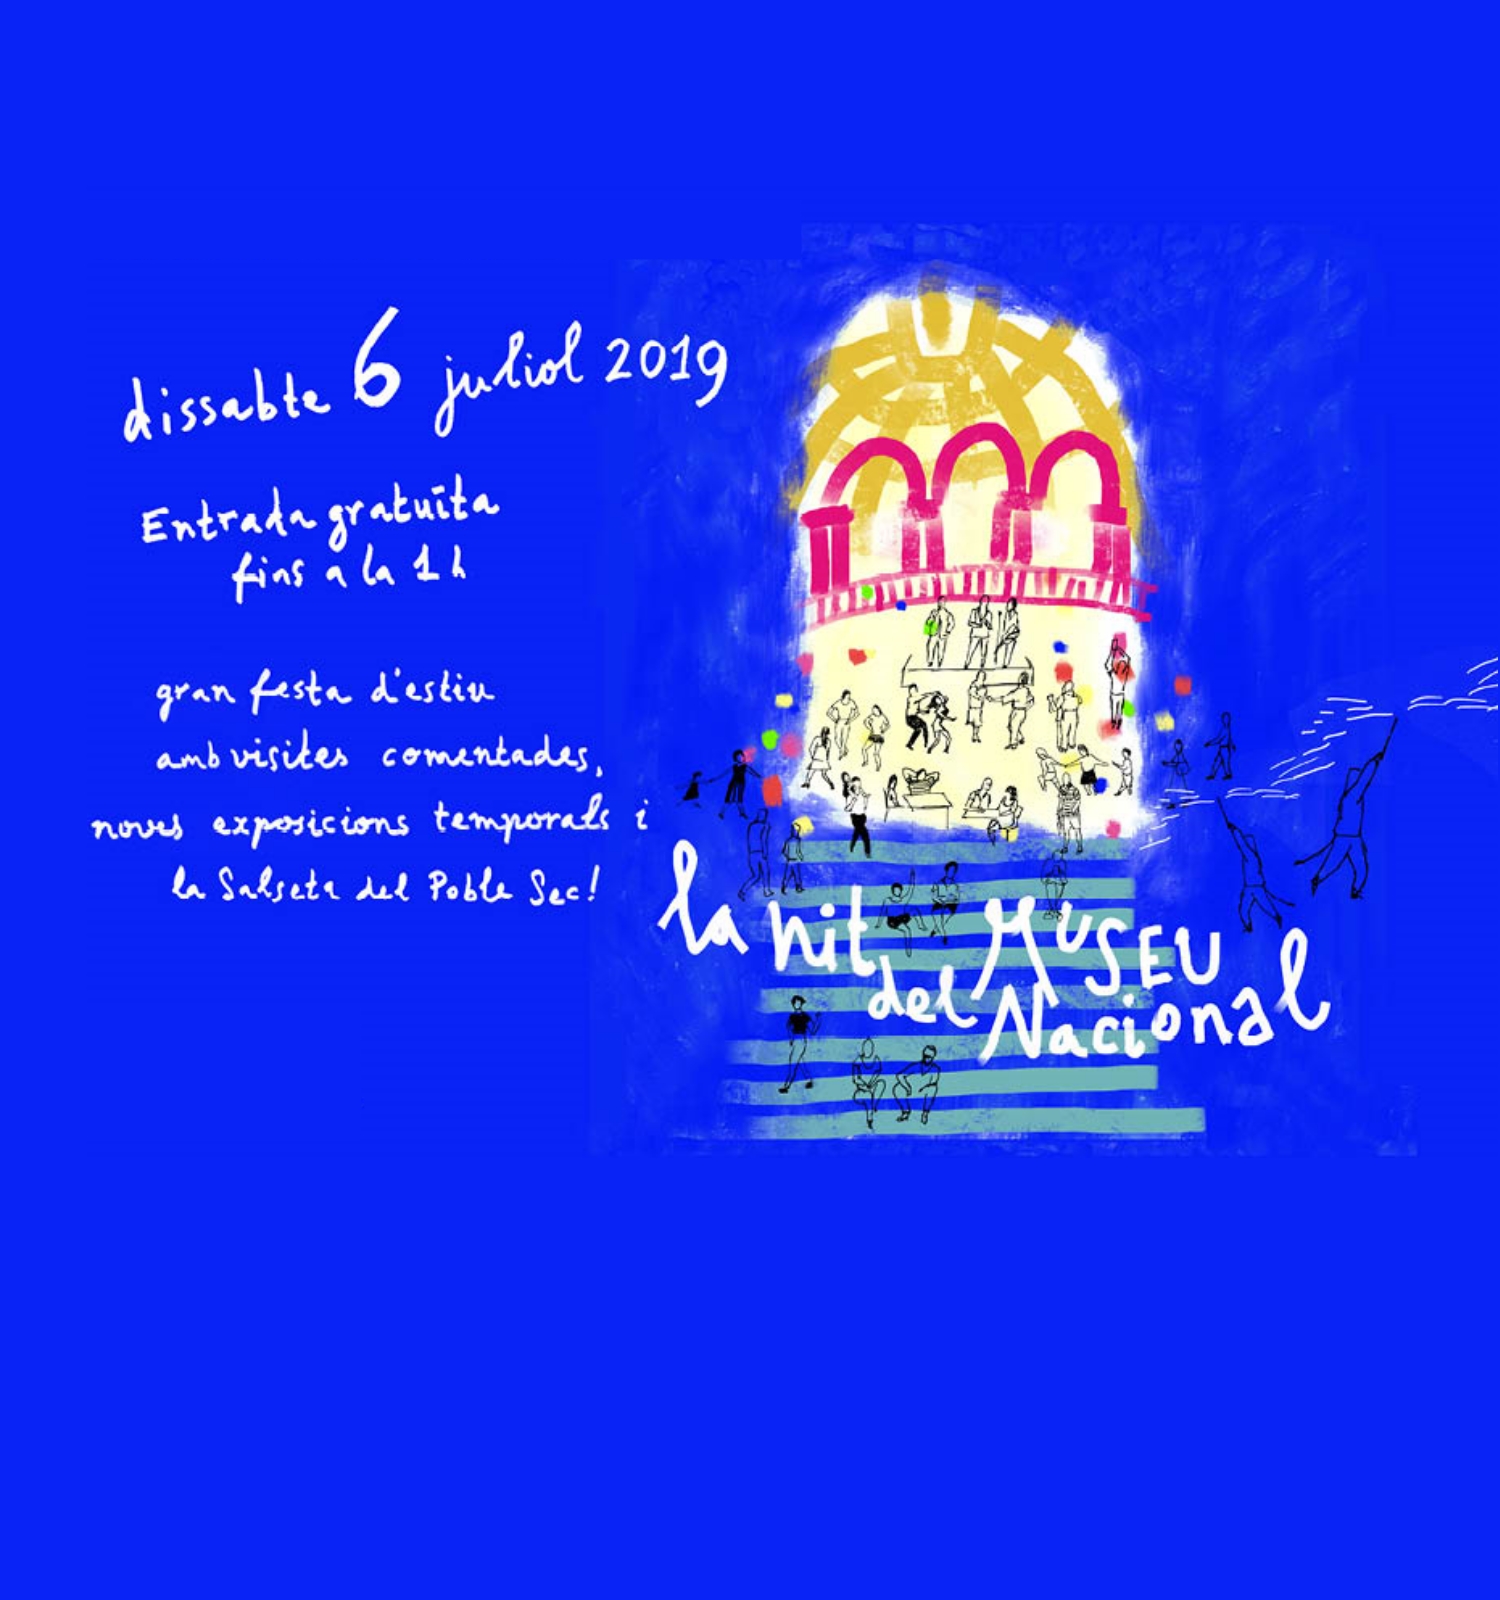 dissabte 6 juliol 2019
Entrada gratuïta
fins a la 1 h
gran festa d'estiu
amb visites comentades,
noves exposicions temporals i
la Salseta del Poble Sec!
la nit
del MUSEU
Nacional